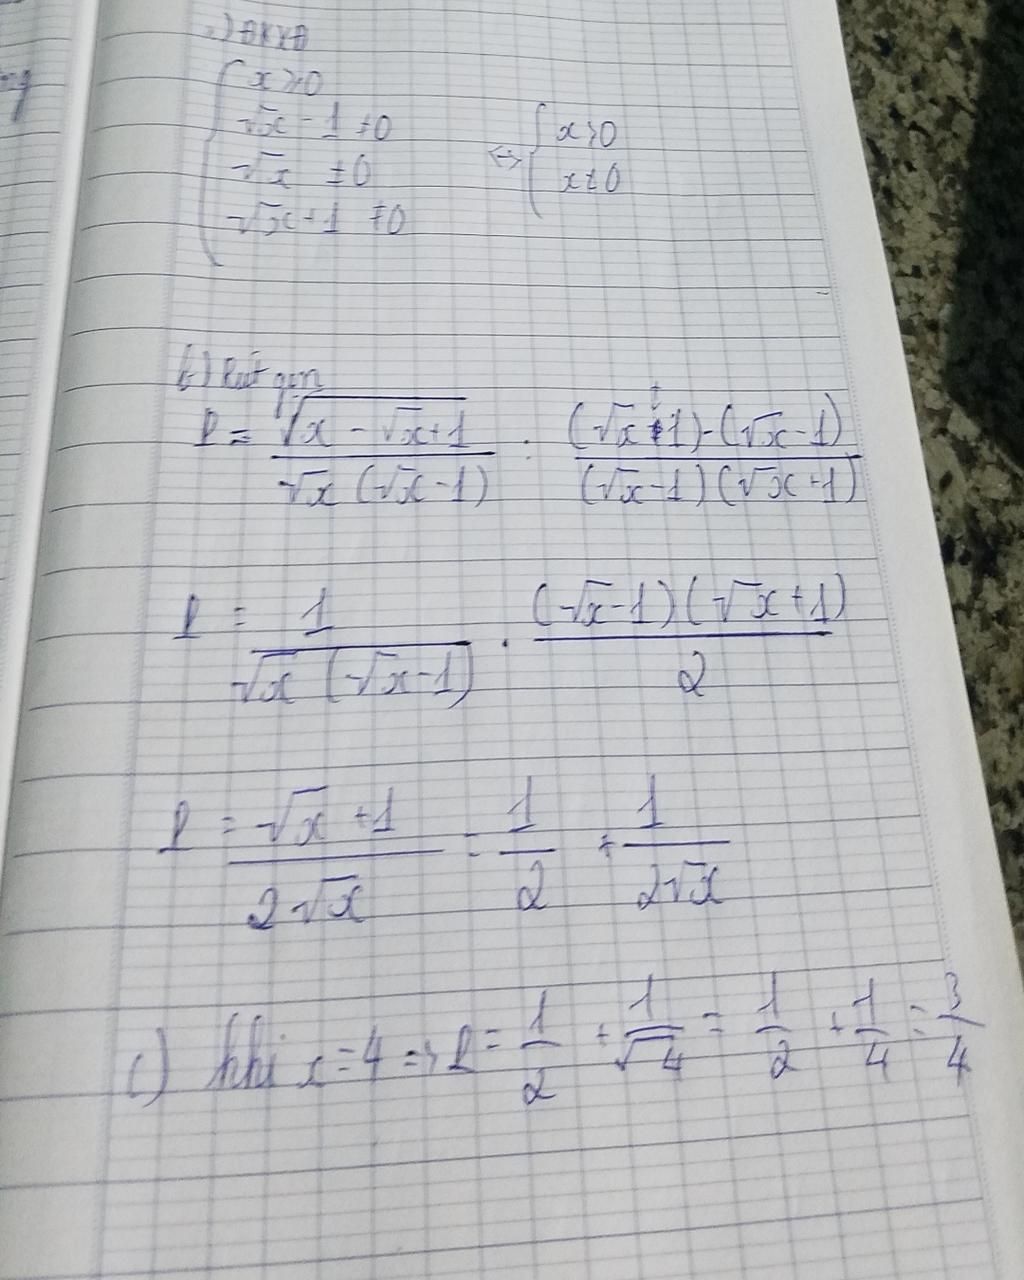 a) ĐKXĐ
{ x ≥ 0
√x - 1 ≠ 0
√x ≠ 0
√x + 1 ≠ 0
<=> { x > 0
x ≠ 0
b) Rút gọn
P = √x - √x + 1 / √x (√x - 1) : (√x + 1) - (√x - 1) / (√x - 1)(√x + 1)
P = 1 / √x (√x - 1) . (√x - 1)(√x + 1) / 2
P = √x + 1 / 2√x = 1/2 + 1 / 2√x
c) khi x = 4 => P = 1/2 + 1/√4 = 1/2 + 1/4 = 3/4